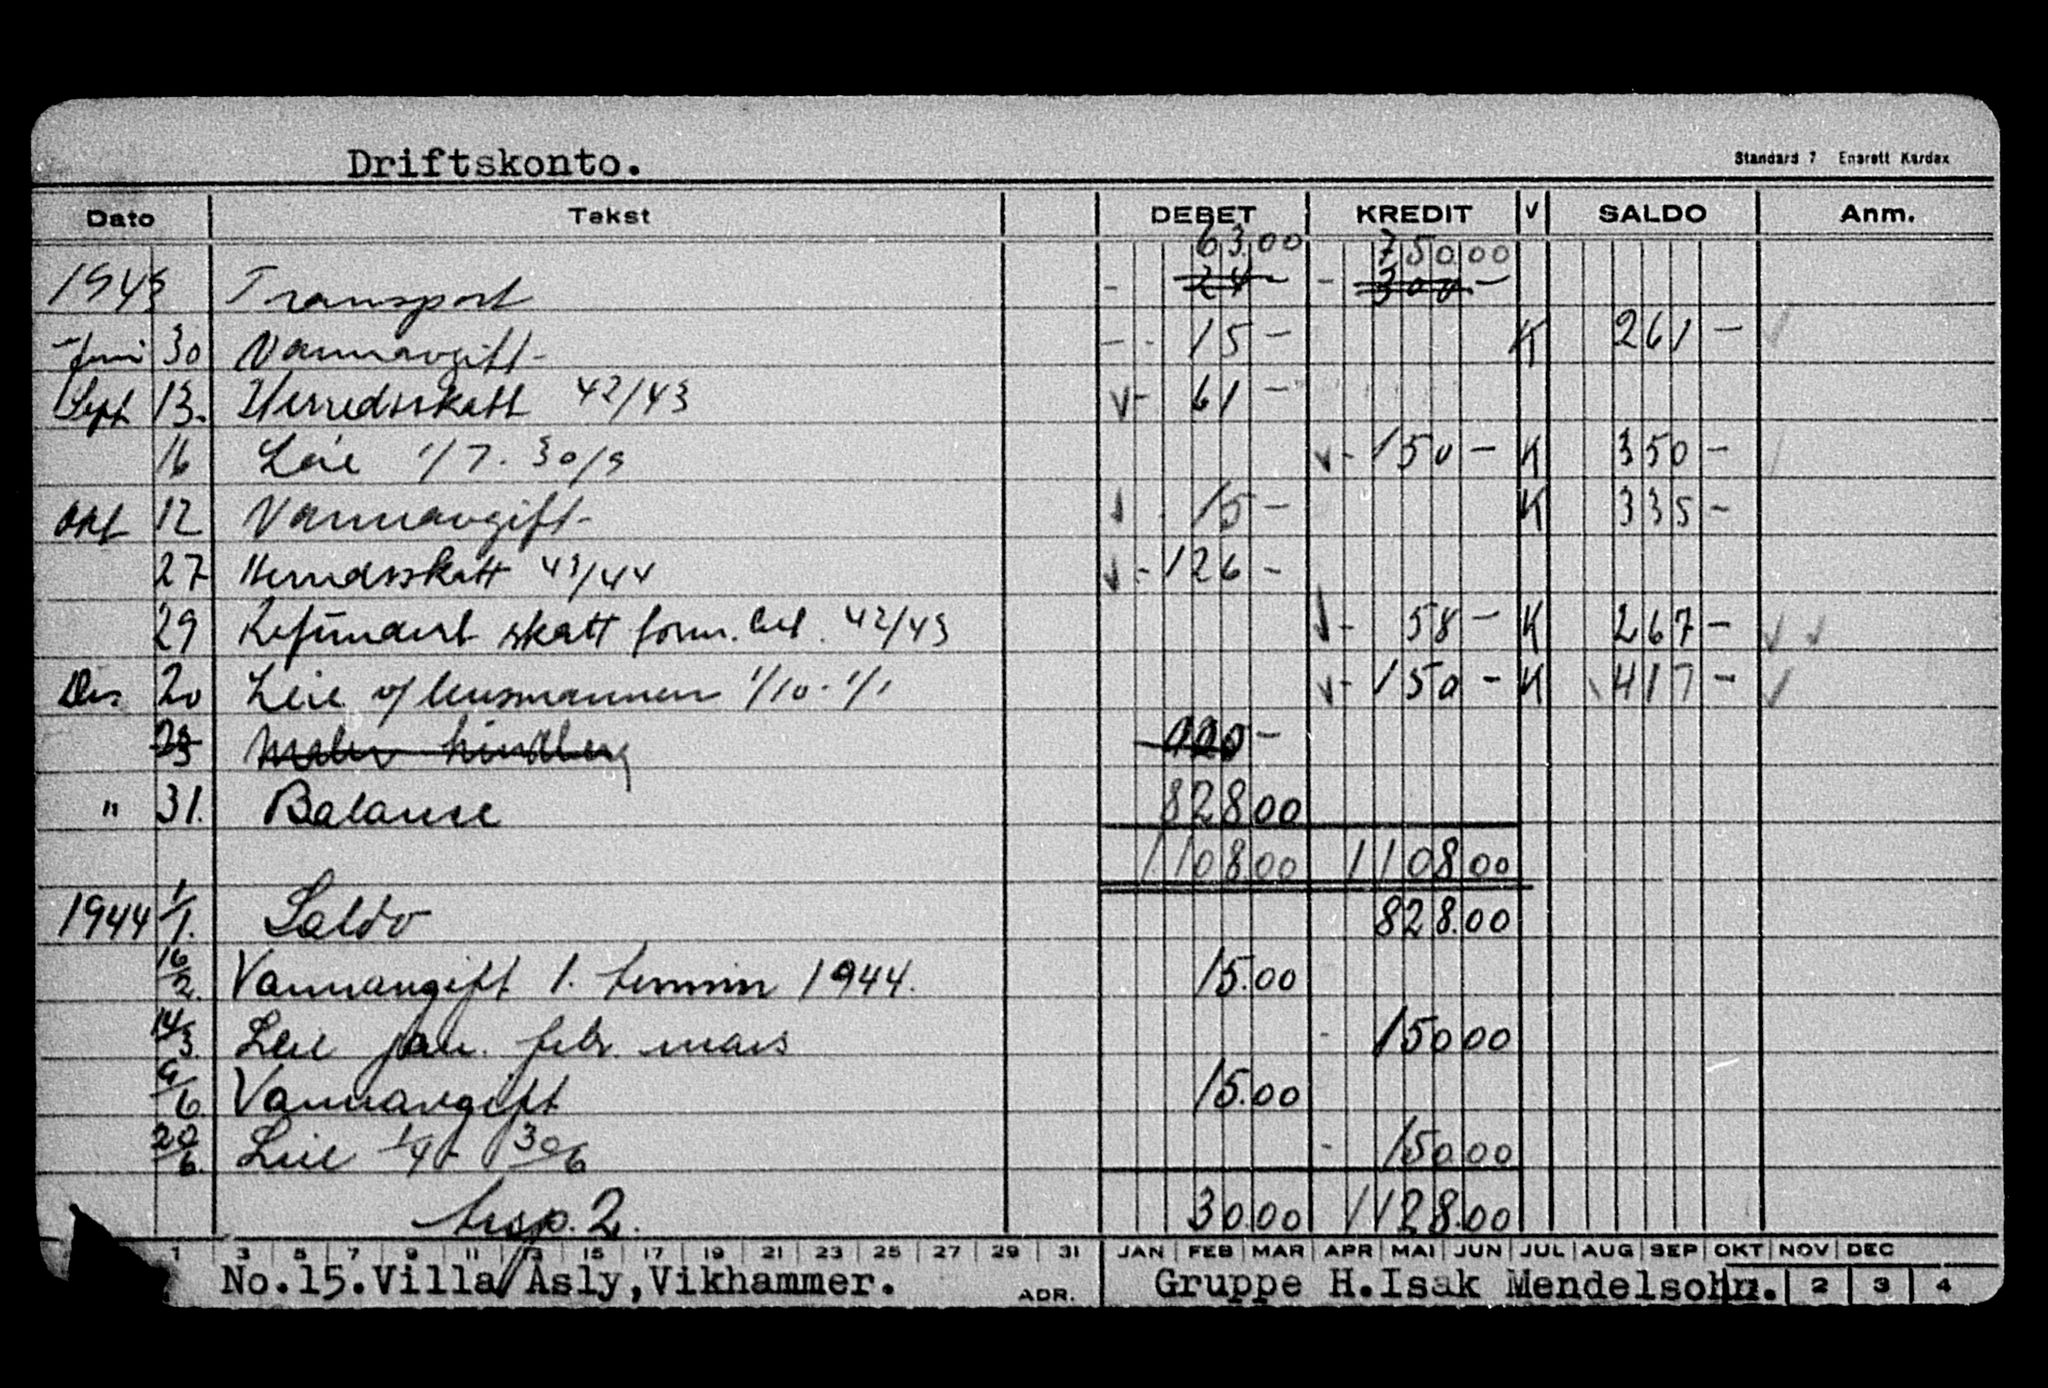 Driftskonto.
Standard 7 Enerett Kardex
Dato Tekst DEBET KREDIT V SALDO Anm.
63.00 750.00
1943 Transport - 24- - 300-
Juni 30 Vannavgift - 15- K 261-
Sept 13. Herredsskatt 42/43 61-
16 Leie 1/7-30/9 150- K 350-
Okt 12 Vannavgift 15- K 335-
27 Herredsskatt 43/44 126-
29 Refundert skatt 42/43 58- K 267-
Des 20 Leie v/ lensmannen 1/10-1/1 150- K 417-
Maler Lindberg
" 31. Balanse 828.00
1108.00 1108.00
1944 1/1. Saldo 828.00
16/2. Vannavgift 1. termin 1944. 15.00
14/3. Leie jan. febr. mars - 150.00
9/6 Vannavgift 15.00
20/6. Leie 1/4- 30/6 - 150.00
trsp. 2. 30.00 1128.00
1 3 5 7 9 11 13 15 17 19 21 23 25 27 29 31 JAN FEB MAR APR MAI JUN JUL AUG SEP OKT NOV DEC
No.15.Villa Åsly,Vikhammer. ADR. Gruppe H.Isak Mendelsohn. 2 3 4